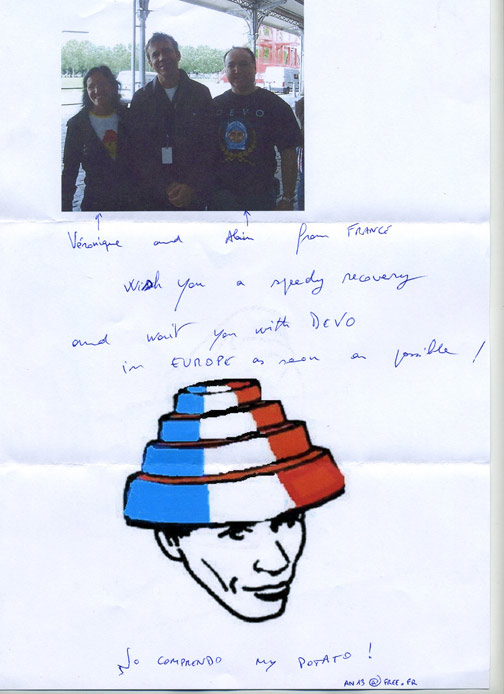 DEVO
Véronique and Alain from FRANCE
Wish you a speedy recovery
and wait you with DEVO
in EUROPE as soon as possible !
No COMPRENDO MY POTATO !
AN13@FREE.FR